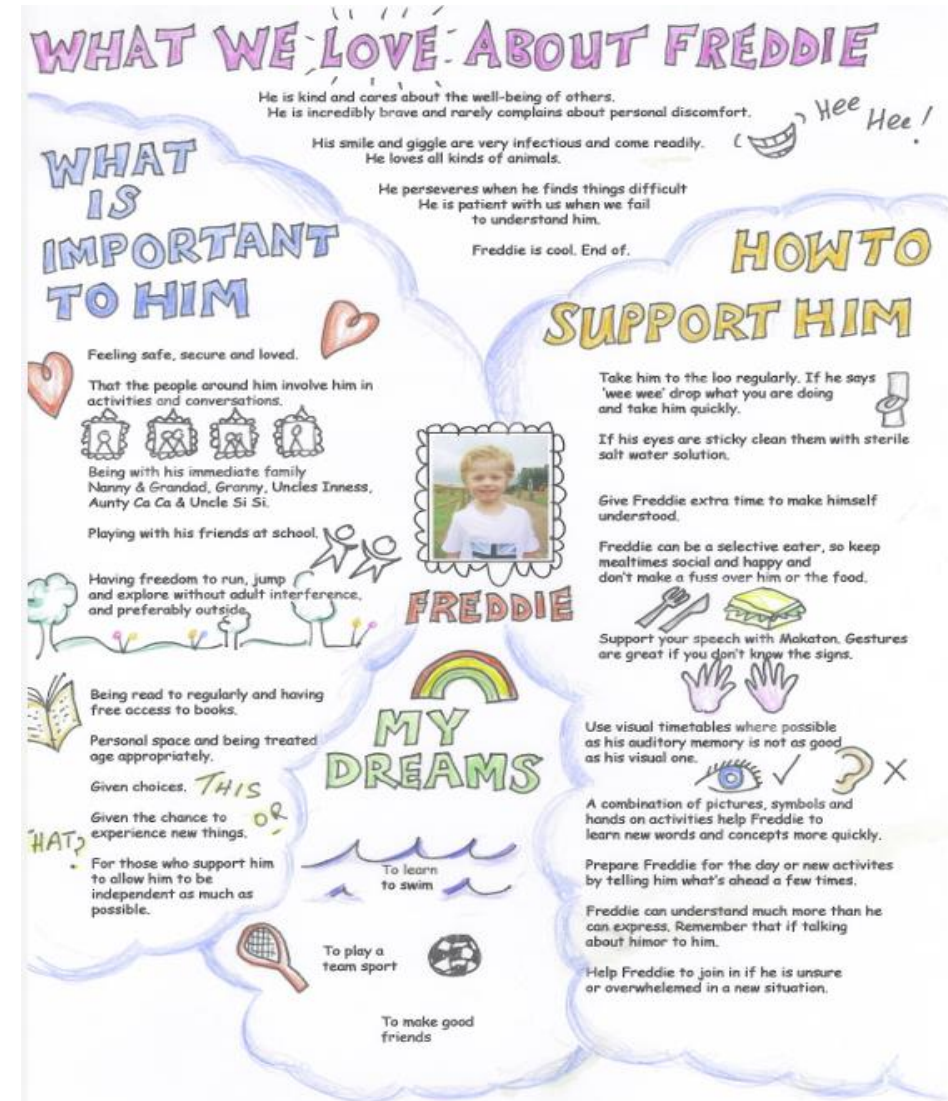 WHAT WE LOVE ABOUT FREDDIE
He is kind and cares about the well-being of others.
He is incredibly brave and rarely complains about personal discomfort.
His smile and giggle are very infectious and come readily.
He loves all kinds of animals.
He perseveres when he finds things difficult
He is patient with us when we fail
to understand him.
Freddie is cool. End of.
Hee Hee!
WHAT
IS
IMPORTANT
TO HIM
Feeling safe, secure and loved.
That the people around him involve him in
activities and conversations.
Being with his immediate family
Nanny & Grandad, Granny, Uncles Inness,
Aunty Ca Ca & Uncle Si Si.
Playing with his friends at school.
Having freedom to run, jump
and explore without adult interference,
and preferably outside.
Being read to regularly and having
free access to books.
Personal space and being treated
age appropriately.
Given choices.
THIS
OR
HAT?
Given the chance to
experience new things.
For those who support him
to allow him to be
independent as much as
possible.
FREDDIE
MY
DREAMS
To learn
to swim
To play a
team sport
To make good
friends
HOW TO
SUPPORT HIM
Take him to the loo regularly. If he says
'wee wee' drop what you are doing
and take him quickly.
If his eyes are sticky clean them with sterile
salt water solution.
Give Freddie extra time to make himself
understood.
Freddie can be a selective eater, so keep
mealtimes social and happy and
don't make a fuss over him or the food.
Support your speech with Makaton. Gestures
are great if you don't know the signs.
Use visual timetables where possible
as his auditory memory is not as good
as his visual one.
A combination of pictures, symbols and
hands on activities help Freddie to
learn new words and concepts more quickly.
Prepare Freddie for the day or new activites
by telling him what's ahead a few times.
Freddie can understand much more than he
can express. Remember that if talking
about himor to him.
Help Freddie to join in if he is unsure
or overwhelemed in a new situation.